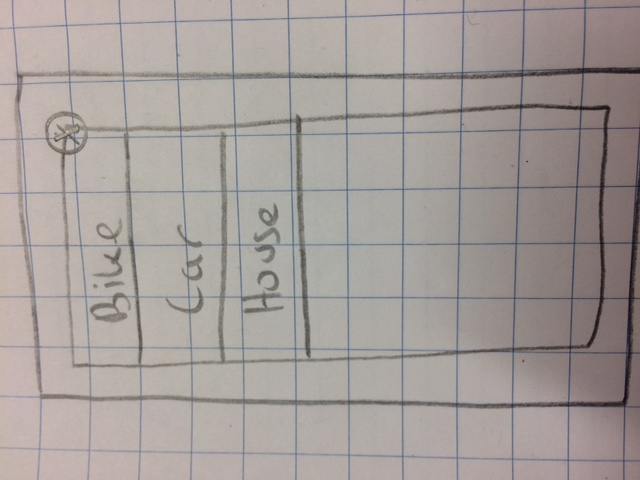 X
Bike
Car
House